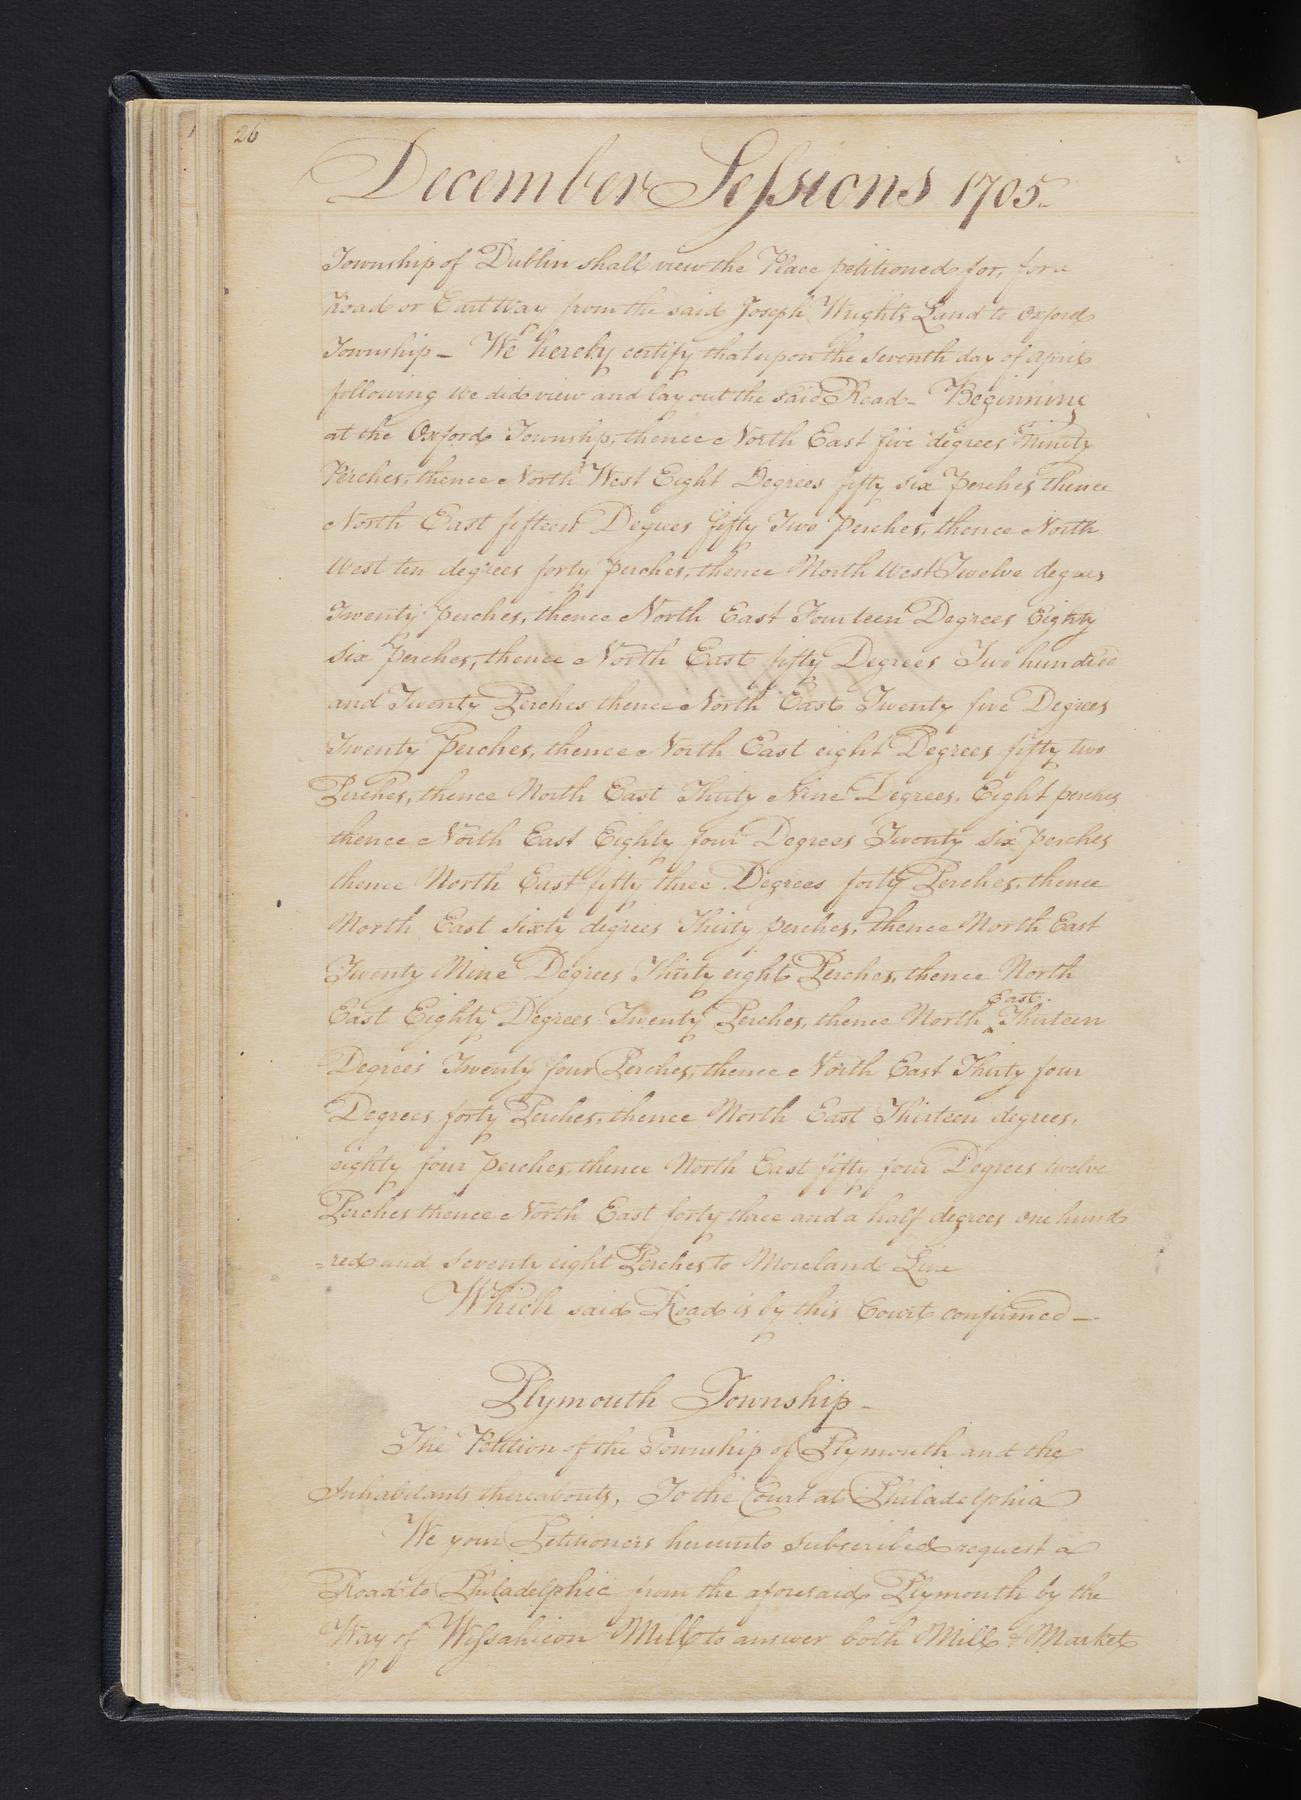 26
December Sessions 1705.
Township of Dublin shall view the Place petitioned for, for a
Road or Cart Way from the said Joseph Wrights Land to Oxford
Township - We hereby certify that upon the seventh day of April
following we did view and lay out the said Road - Beginning
at the Oxford Township, thence North East five degrees Ninety
Perches, thence North West Eight Degrees fifty six Perches thence
North East fifteen Degrees fifty Two Perches, thence North
West ten degrees forty perches, thence North West Twelve degrees
Twenty perches, thence North East Fourteen Degrees Eighty
six Perches, thence North East fifty Degrees Two hundred
and Twenty Perches thence North East Twenty five Degrees
Twenty Perches, thence North East eight Degrees fifty two
Perches, thence North East Thirty Nine Degrees, Eight perches
thence North East Eighty four Degrees Twenty six perches
thence North East fifty three Degrees forty Perches, thence
North East sixty degrees Thirty perches, thence North East
Twenty Nine Degrees Thirty eight Perches, thence North
East Eighty Degrees Twenty Perches, thence North East Thirteen
Degrees Twenty four Perches, thence North East Thirty four
Degrees forty Perches, thence North East Thirteen degrees,
eighty four perches, thence North East fifty four Degrees twelve
Perches thence North East forty three and a half degrees one hund
=red and seventy eight Perches to Moreland Line
Which said Road is by this Court confirmed -
Plymouth Township -
The Petition of the Township of Plymouth and the
Inhabitants thereabouts, To the Court at Philadelphia
We your Petitioners hereunto subscribed request a
Road to Philadelphia from the aforesaid Plymouth by the
Way of Wissahicon Mill to answer both Mill & Market